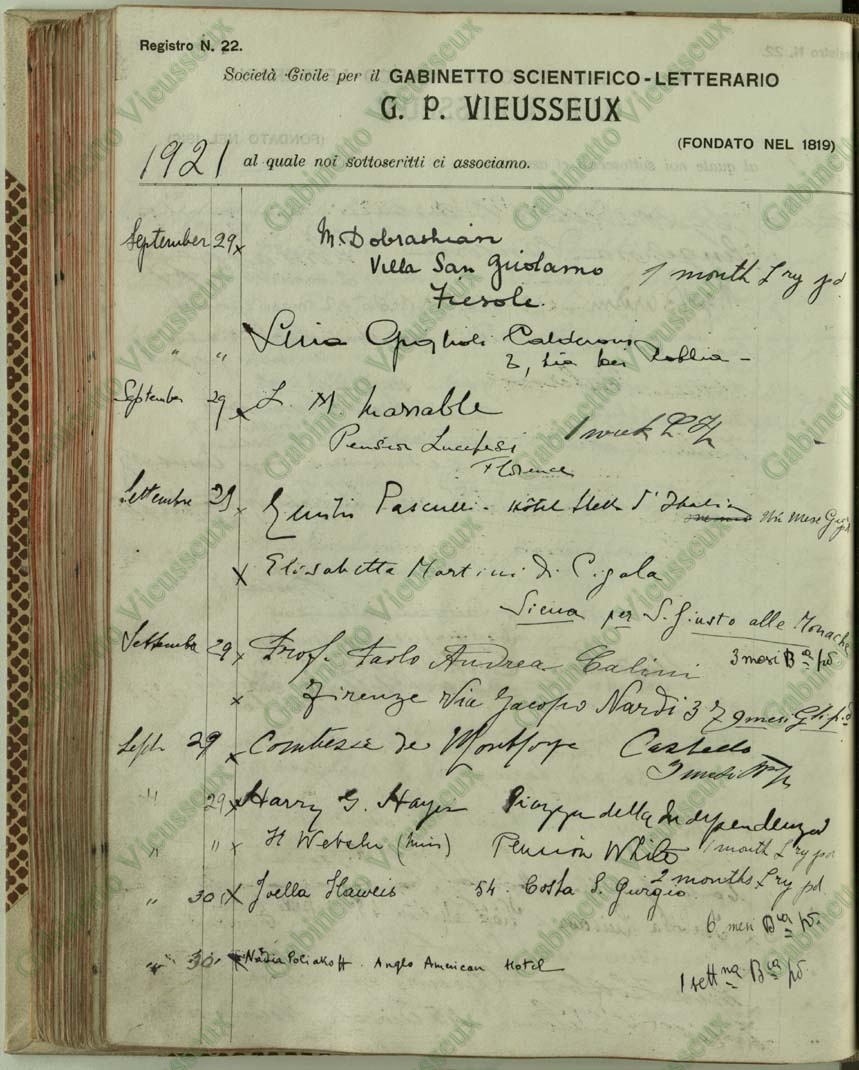 Registro N. 22.
Società Civile per il GABINETTO SCIENTIFICO-LETTERARIO
G. P. VIEUSSEUX
(FONDATO NEL 1819)
1921 al quale noi sottoscritti ci associamo.
September 29 x M. Dobrashian
Villa San Girolamo 1 month L ry pd
Fiesole.
" " Lina Calderoni
3, Via
September 29 x L. M. Marrable
Pension Lucchesi 1 week
Florence
Settembre 29 x Pasculli - Hôtel Stella d'Italia Un mese
x Elisabetta Martini di Cigala
Siena per S. Giusto alle Monache
Settembre 29 x Prof. Paolo Andrea Calini 3 mesi Bca pd
x Firenze Via Jacopo Nardi 37 9 mesi
Sept. 29 x Comtesse de Montfort
" 29 x Harry G. Hayer Piazza della Independenza
" " x H Webster (Miss) Pension White 1 month L ry pd
" 30 x Joella Haweis 54. Costa S. Giorgio 2 months L ry pd
6 mesi Bca pd.
" 30 x Nadia Poliakoff. Anglo American Hotel
1 settna Bca pd
Gabinetto Vieusseux